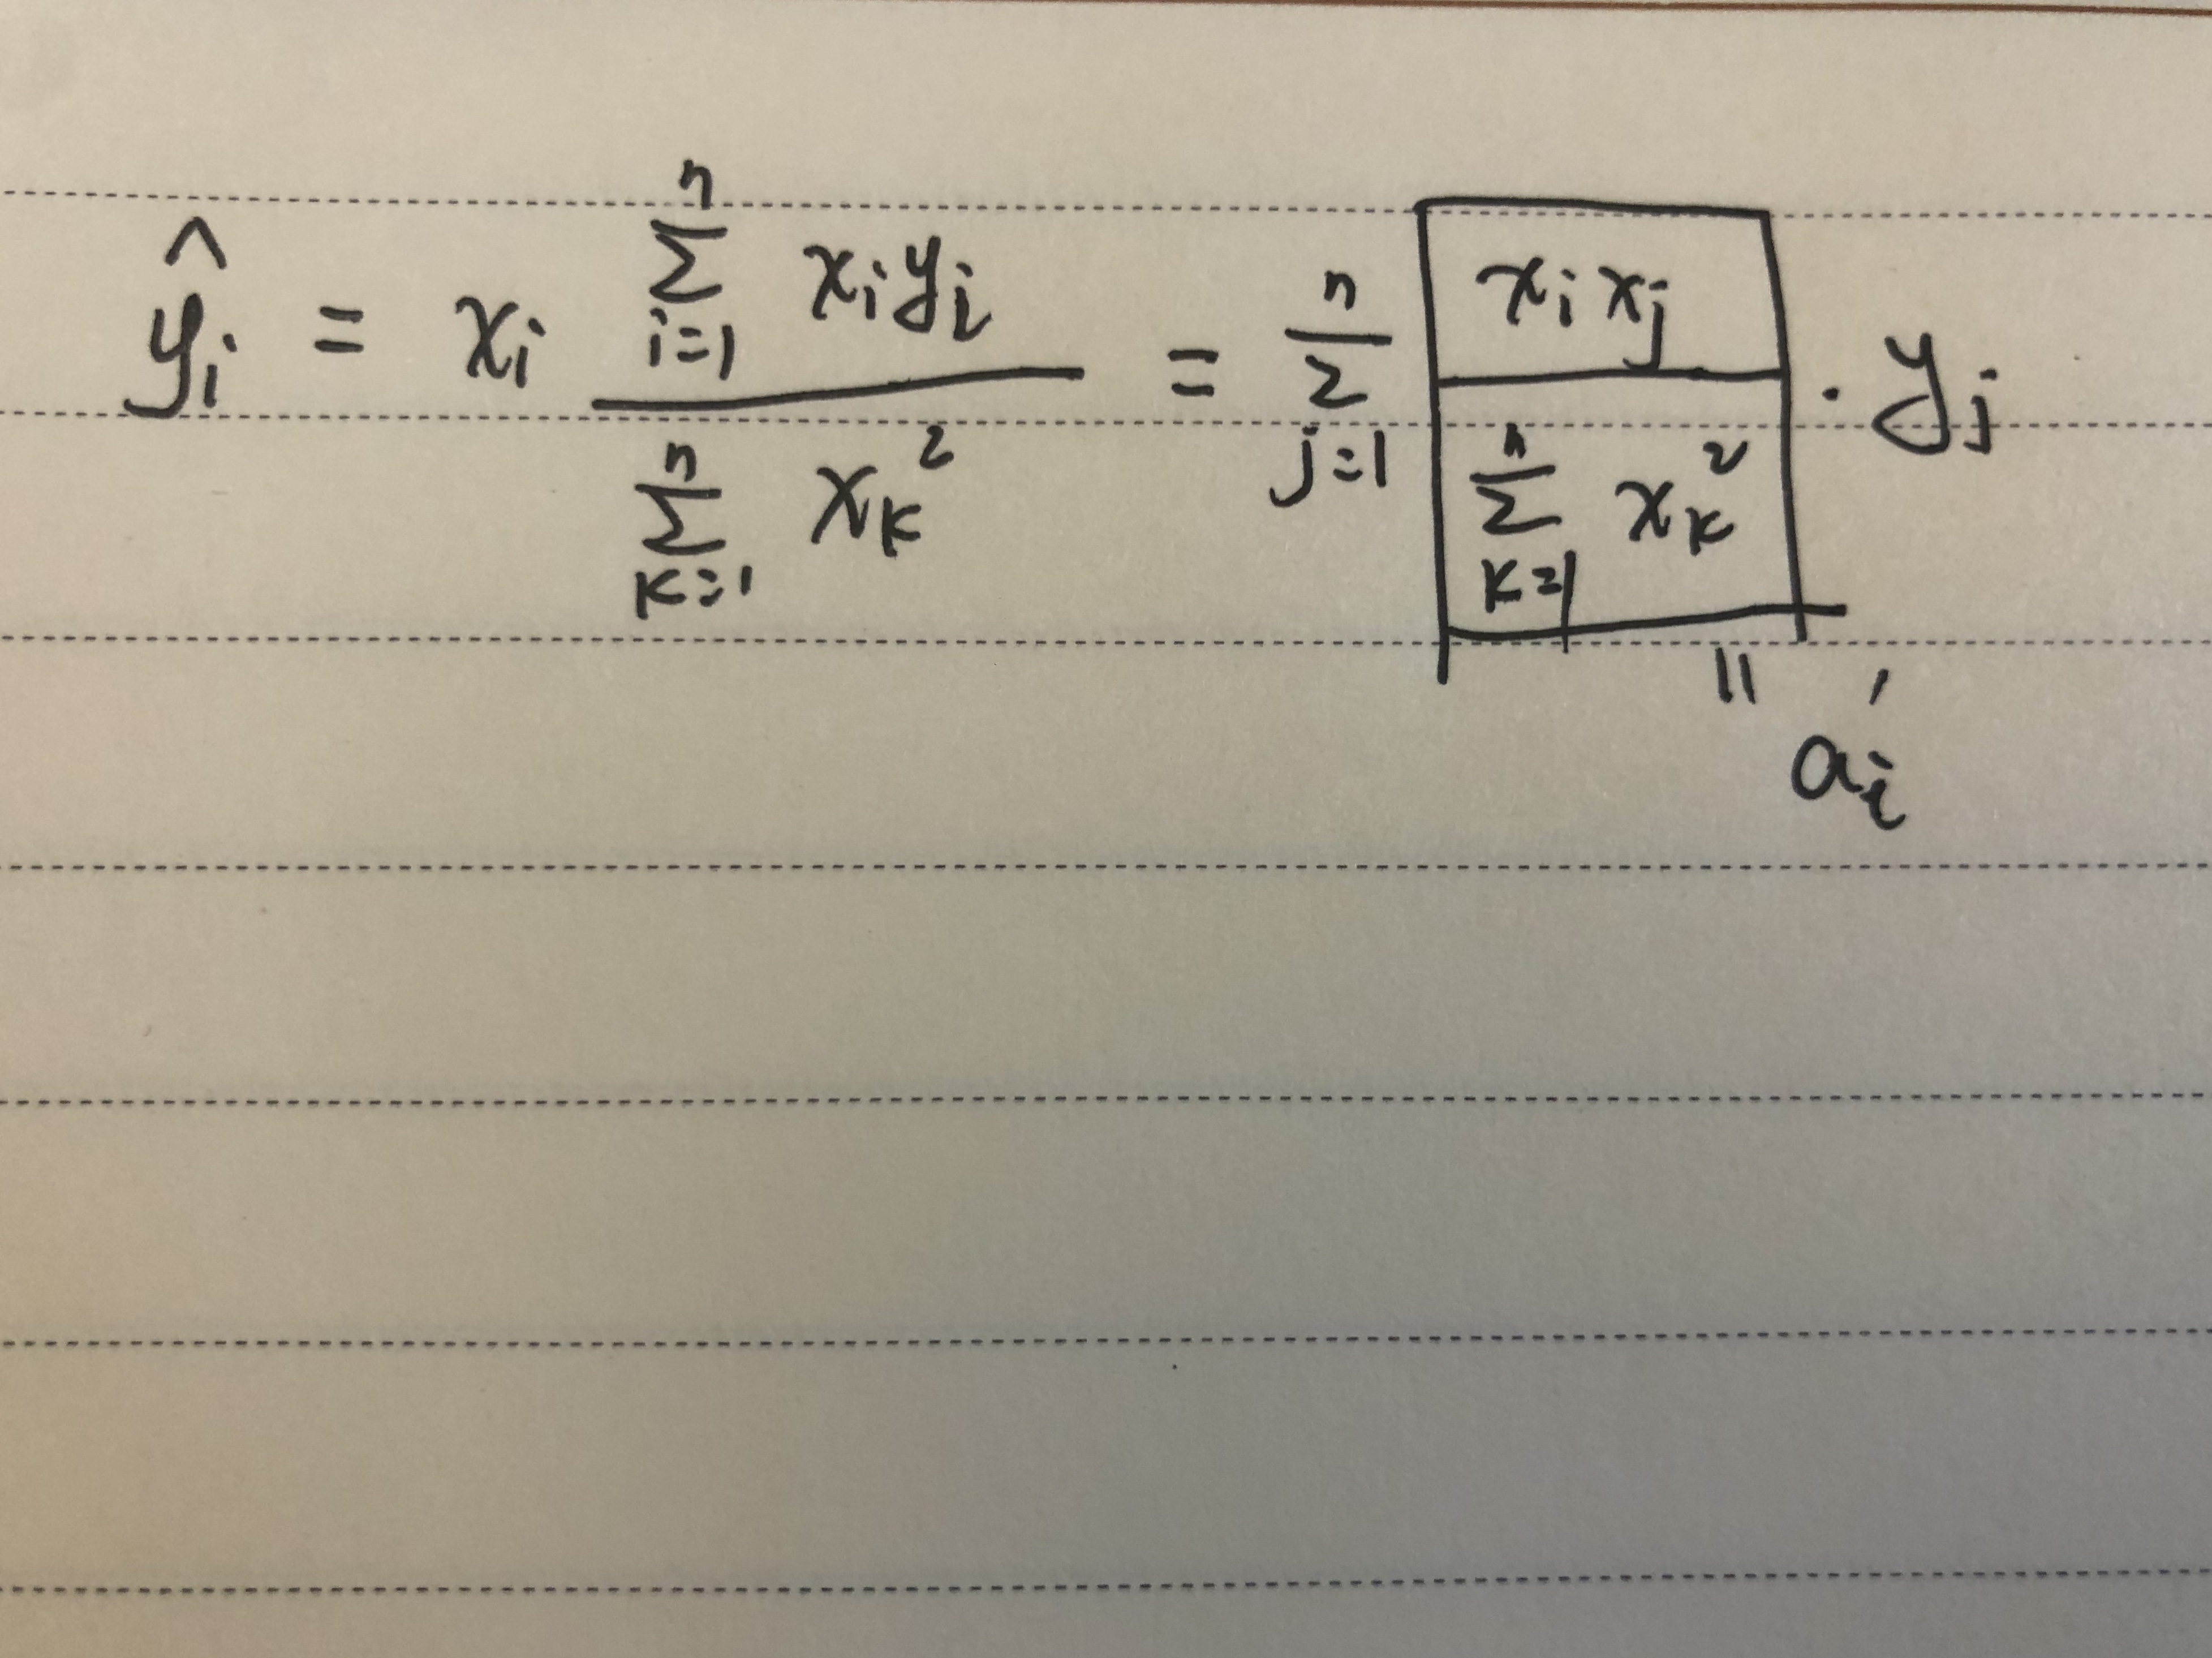 ŷᵢ = xᵢ (∑_{i=1}^{n} xᵢyᵢ) / (∑_{k=1}^{n} x_k²) = ∑_{j=1}^{n} [ xᵢxⱼ / (∑_{k=1}^{n} x_k²) ] · yⱼ
|| aᵢ′